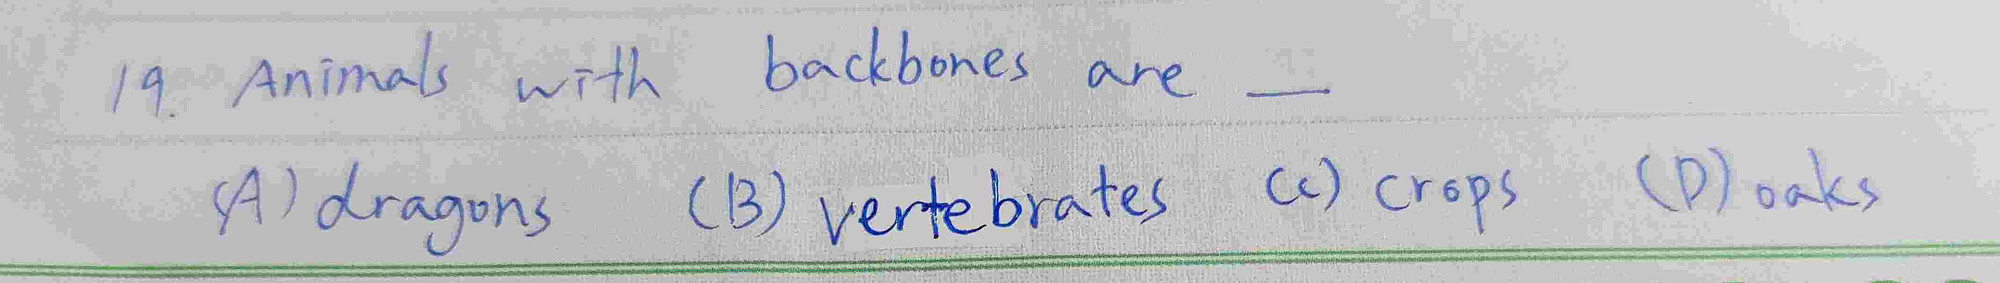 19. Animals with backbones are __
(A) dragons (B) vertebrates (c) crops (D) oaks